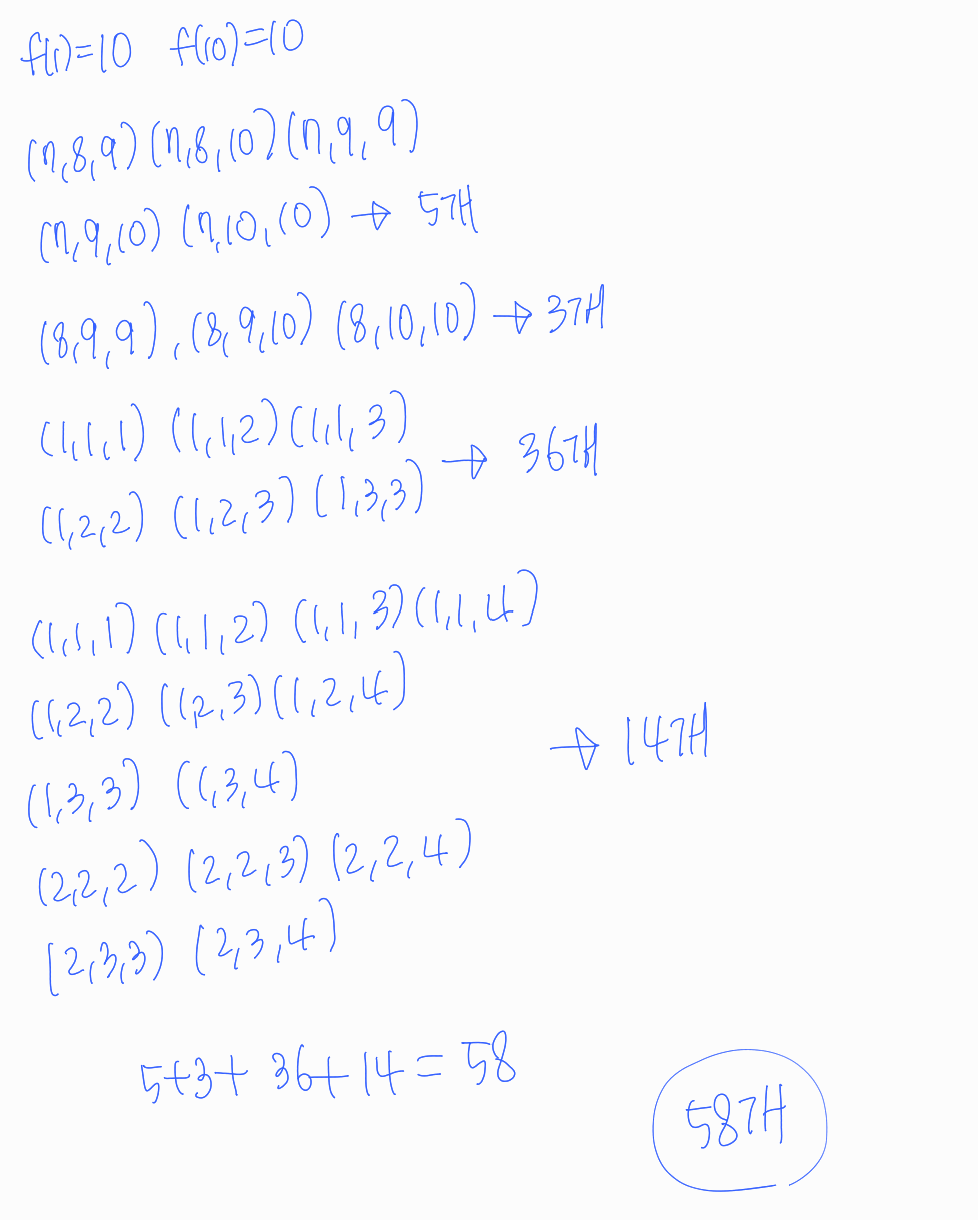 f(1)=10 f(10)=10
(7,8,9) (7,8,10) (7,9,9)
(7,9,10) (7,10,10) → 5개
(8,9,9), (8,9,10) (8,10,10) → 3개
(1,1,1) (1,1,2) (1,1,3)
(1,2,2) (1,2,3) (1,3,3) → 36개
(1,1,1) (1,1,2) (1,1,3) (1,1,4)
(1,2,2) (1,2,3) (1,2,4)
(1,3,3) (1,3,4) → 14개
(2,2,2) (2,2,3) (2,2,4)
(2,3,3) (2,3,4)
5+3+36+14=58
58개